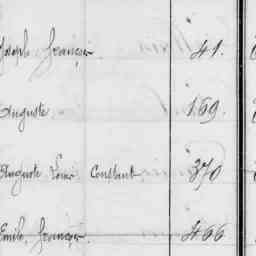 Joseph François 41.
Auguste 169.
Auguste Louis Constant 370
Emile François. 466